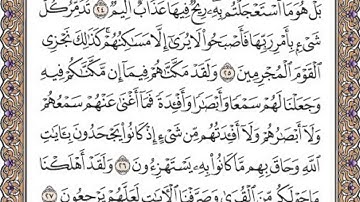 بَلْ هُوَ مَا ٱسْتَعْجَلْتُم بِهِۦ رِيحٌ فِيهَا عَذَابٌ أَلِيمٌ ٢٤ تُدَمِّرُ كُلَّ
شَىْءٍۭ بِأَمْرِ رَبِّهَا فَأَصْبَحُوا۟ لَا يُرَىٰٓ إِلَّا مَسَٰكِنُهُمْ كَذَٰلِكَ نَجْزِى
ٱلْقَوْمَ ٱلْمُجْرِمِينَ ٢٥ وَلَقَدْ مَكَّنَّٰهُمْ فِيمَآ إِن مَّكَّنَّٰكُمْ فِيهِ
وَجَعَلْنَا لَهُمْ سَمْعًا وَأَبْصَٰرًا وَأَفْـِٔدَةً فَمَآ أَغْنَىٰ عَنْهُمْ سَمْعُهُمْ
وَلَآ أَبْصَٰرُهُمْ وَلَآ أَفْـِٔدَتُهُم مِّن شَىْءٍ إِذْ كَانُوا۟ يَجْحَدُونَ بِـَٔايَٰتِ
ٱللَّهِ وَحَاقَ بِهِم مَّا كَانُوا۟ بِهِۦ يَسْتَهْزِءُونَ ٢٦ وَلَقَدْ أَهْلَكْنَا
مَا حَوْلَكُم مِّنَ ٱلْقُرَىٰ وَصَرَّفْنَا ٱلْـَٔايَٰتِ لَعَلَّهُمْ يَرْجِعُونَ ٢٧